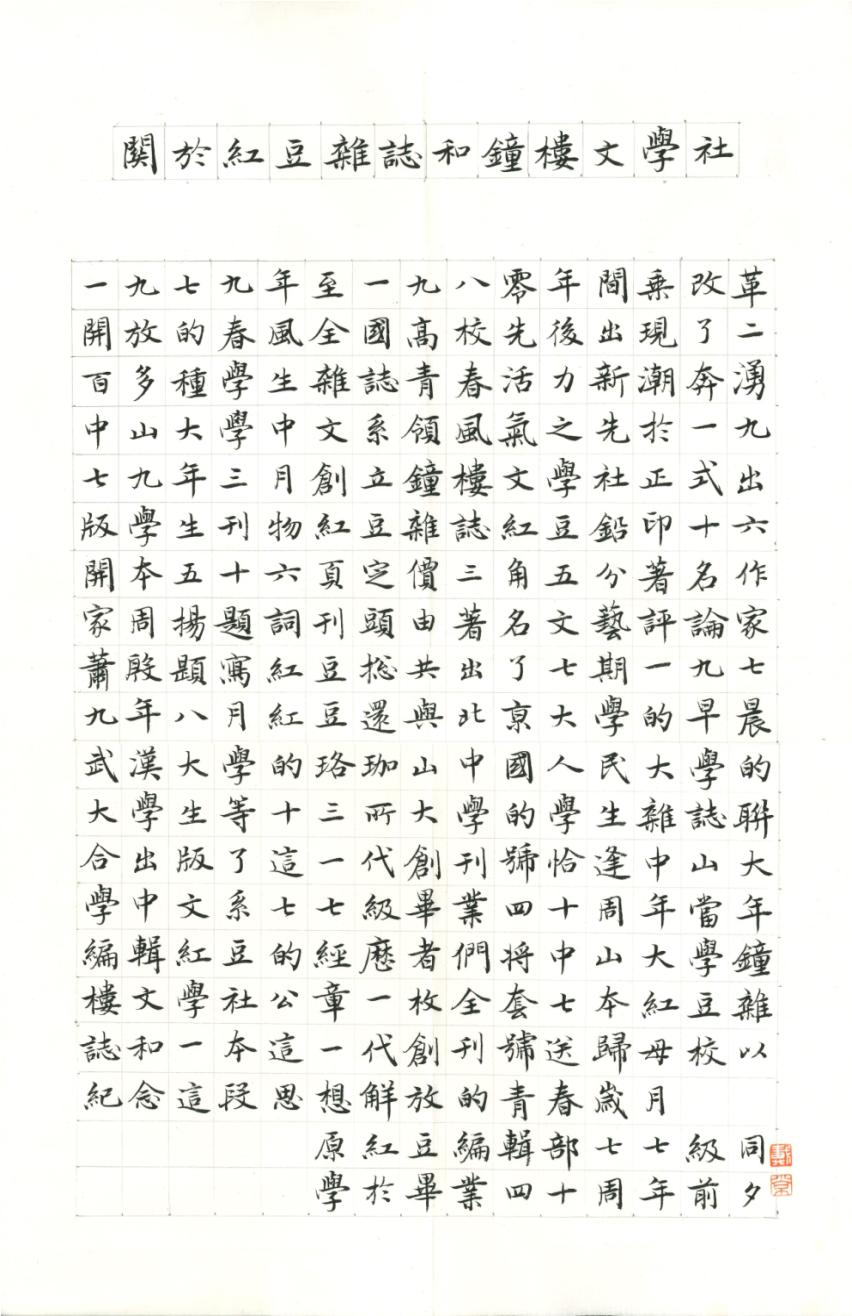 關於紅豆雜誌和鐘樓文學社
一九七九年至一九八零年間乘改革
開放的春風全國高校先後出現了二
百多種學生雜誌青春活力新潮奔湧
中山大學中文系領風氣之先於一九
七九年三月創立鐘樓文學社正式出
版學生刊物紅豆雜誌紅豆鉛印十六
開本五十六頁定價三角五分著名作
家周揚題詞刊頭由著名文藝評論家
蕭殷題寫紅豆捴共出了七期一九七
九年八月紅豆還與北京大學的早晨
武漢大學的珞珈山中國人民大學的
大學生等十三所大學的學生雜誌聯
合出版了這一代創刊號恰逢中山大
學中文系七七級畢業四十周年當年
編輯紅豆的經歷者們將中山大學鐘
樓文學社公章一枚全套七本紅豆雜
誌和一本這一代創刊號送歸母校以
紀念這段思想解放的青春歲月
原紅豆編輯部七七級同
學於畢業四十周年前夕